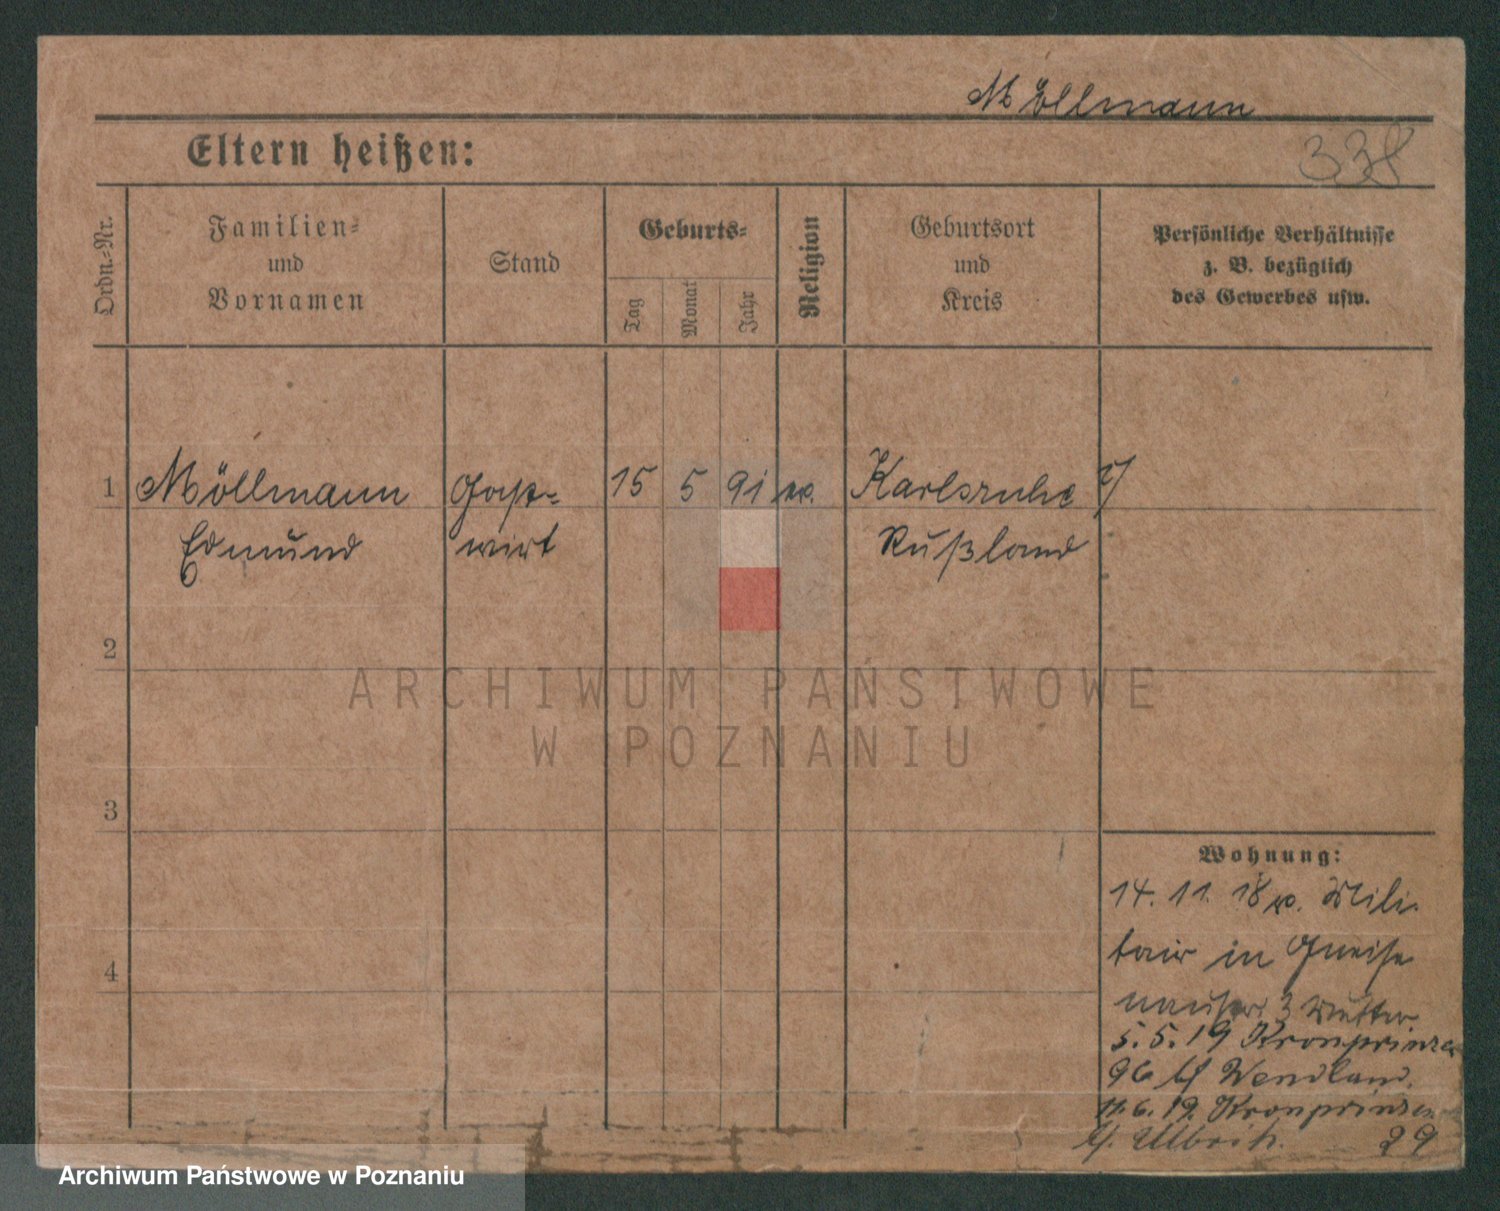 Möllmann
Eltern heißen:
338
Ordn.-Nr.
Familien-
und
Vornamen
Stand
Geburts-
Tag
Monat
Jahr
Religion
Geburtsort
und
Kreis
Persönliche Verhältnisse
z. B. bezüglich
des Gewerbes usw.
1 Möllmann Gast- 15 5 91 ev. Karlsruhe
Edmund wirt Rußland
2
ARCHIWUM PAŃSTWOWE
W POZNANIU
3
Wohnung:
14. 11. 18 v. Mili-
tair in Gneise
naustr. 3 Mutter.
4
5. 5. 19 Kronprinzen
96 b/ Wendland.
11. 6. 19. Kronprinzen
b/. Ulbrich. 29
Archiwum Państwowe w Poznaniu